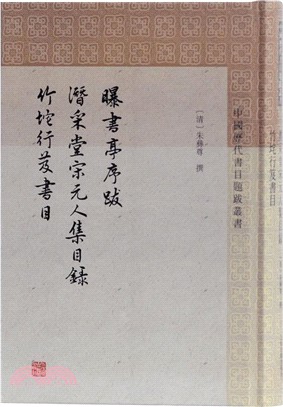 曝書亭序跋
潛采堂宋元人集目録
竹垞行笈書目
［清］朱彝尊 撰
中國歷代書目題跋叢書
竹垞行笈書目